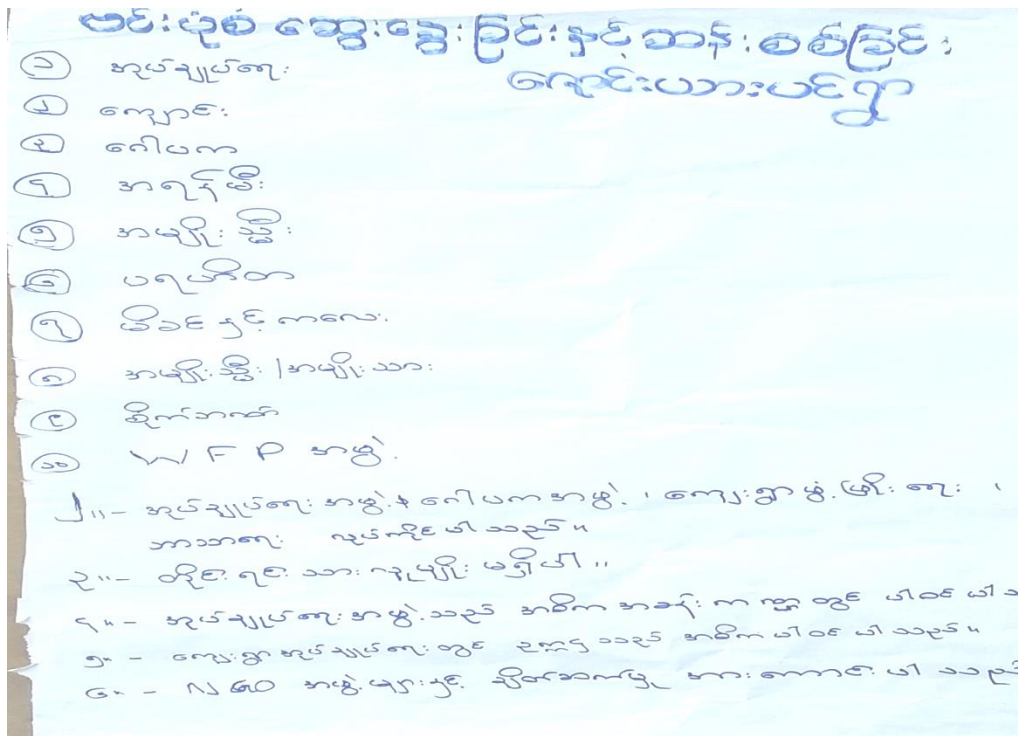 ဗင်းပုံစံ ဆွေးနွေးခြင်းနှင့်ဆန်းစစ်ခြင်း
ညောင်းယားပင်ရွာ
၁ အုပ်ချုပ်ရေး
၂ ကျောင်း
၃ ဂေါပက
၄ အရန်မီး
၅ အမျိုးသ္မီး
၆ ပရဟိတ
၇ မိခင်နှင့်ကလေး
၈ အမျိုးသ္မီး/အမျိုးသား
၉ စိုက်ဘဏ်
၁၀ W F P အဖွဲ့
၂။- အုပ်ချုပ်ရေးအဖွဲ့ + ဂေါပကအဖွဲ့၊ ကျေးရွာဖွံ့ဖြိုးရေး၊
ဘာသာရေး လုပ်ကိုင်ပါသည်။
၃။- တိုင်းရင်းသားလူမျိုးမရှိပါ။
၄။- အုပ်ချုပ်ရေးအဖွဲ့သည် အဓိကအခန်းကဏ္ဍတွင် ပါဝင်ပါ
၅။- ကျေးရွာအုပ်ချုပ်ရေးတွင် ဥက္ကဌသည် အဓိကပါဝင်ပါသည်။
၆။- NGO အဖွဲ့များနှင့် ချိတ်ဆက်မှု အားကောင်းပါသည်